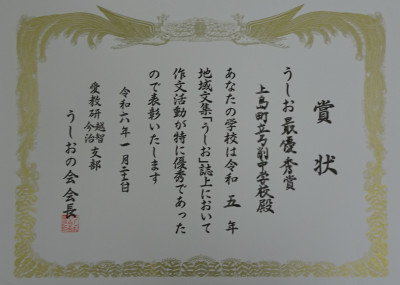 賞状
うしお最優秀賞
上島町立弓削中学校殿
あなたの学校は令和五年
地域文集「うしお」誌上において
作文活動が特に優秀であった
ので表彰いたします
令和六年一月二十三日
愛教研 越智
今治 支部
うしおの会会長